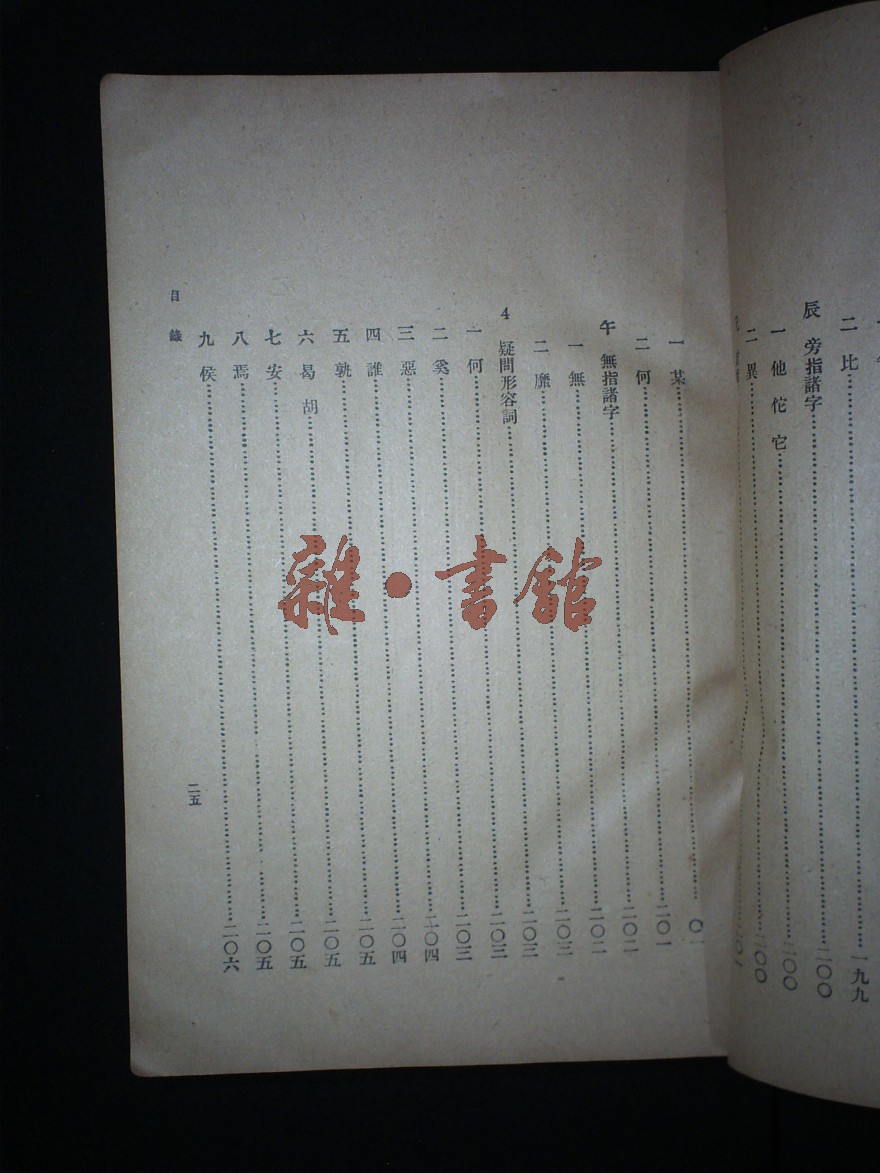 二 比……一九九
辰 旁指諸字……二〇〇
一 他 佗 它……二〇〇
二 異……二〇〇
一 某……〇一
二 何……二〇一
午 無指諸字……二〇二
一 無……二〇二
二 靡……二〇三
4 疑問形容詞……二〇三
一 何……二〇三
二 奚……二〇四
三 惡……二〇四
四 誰……二〇五
五 孰……二〇五
六 曷 胡……二〇五
七 安……二〇五
八 焉……二〇五
九 侯……二〇六
目錄
二五
雜·書館